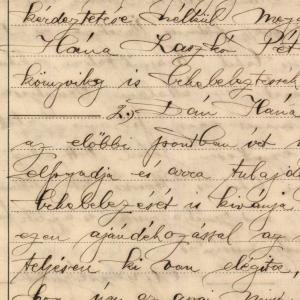 kérdeztetése nélkül meg
Hána Laszkó Pét
könyvileg is bekebeleztessék
2. Dán Hána
az előbbi pontban
elfogadja és arra tulajdo
bekebelezését is kivánja
ezen ajándékozással az
teljesen ki van elégitve,
hogy úgy az